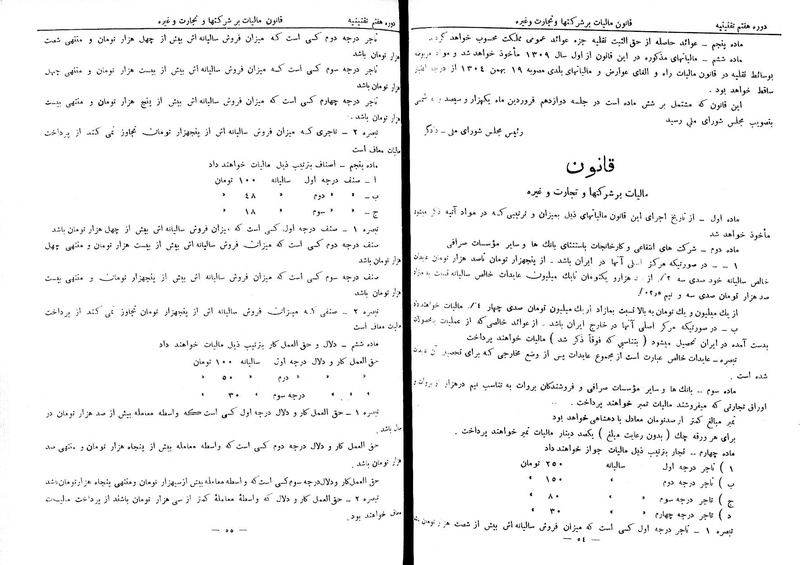 دوره هفتم تقنینیه
قانون مالیات بر شرکتها و تجارت و غیره
ماده پنجم ـ عوائد حاصله از حق الثبت نقلیه جزء عوائد عمومی مملکت محسوب خواهد
ماده ششم ـ مالیاتهای مذکوره در این قانون از اول سال ۱۳۰۹ مأخوذ خواهد شد و مواد مربوطه
بوسائط نقلیه در قانون مالیات راه و الغای عوارض و مالیاتهای بلدی مصوبه ۱۹ بهمن ۱۳۰۴ از درجه اعتبار
ساقط خواهد بود .
این قانون که مشتمل بر شش ماده است در جلسه دوازدهم فروردین ماه یکهزار و سیصد و نه شمسی
بتصویب مجلس شورای ملی رسید
رئیس مجلس شورای ملی ـ دادگر
قانون
مالیات بر شرکتها و تجارت و غیره
ماده اول ـ از تاریخ اجرای این قانون مالیاتهای ذیل بمیزان و ترتیبی که در مواد آتیه ذکر میشود
مأخوذ خواهد شد
ماده دوم ـ شرکت های انتفاعی و کارخانجات باستثنای بانک ها و سایر مؤسسات صرافی
۱ ـ ـ در صورتیکه مرکز اصلی آنها در ایران باشد . از پنجهزار تومان تاصد هزار تومان عایدات
خالص سالیانه خود صدی سه ۳٪ از صد هزارو یکتومان تایک میلیون عایدات خالص سالیانه نسبت به مازاد
صد هزار تومان صدی سه و نیم
از یک میلیون و یک تومان به بالا نسبت بمازاد از یک میلیون تومان صدی چهار ۴٪ مالیات خواهند داد
ب ـ در صورتیکه مرکز اصلی آنها در خارج ایران باشد . از عوائد خالصی که از عملیات یا محصولات
بدست آمده در ایران تحصیل میشود ( بتناسبی که فوقاً ذکر شد ) مالیات خواهند پرداخت
تبصره ـ عایدات خالص عبارت است از مجموع عایدات پس از وضع مخارجی که برای تحصیل آن عایدات
شده است .
ماده سوم .. بانک ها و سایر مؤسسات صرافی و فروشندکان بروات به تناسب نیم درهزار از بروات و
اوراق تجارتی که میفروشند مالیات تمبر خواهند پرداخت .
تمبر مبالغ کمتر ازصدتومان معادل با دهشاهی خواهد بود
برای هر ورقه چك ( بدون رعایت مبلغ ) یکصد دینار مالیات تمبر خواهند پرداخت .
ماده چهارم .. تجار بترتیب ذیل مالیات جواز خواهند داد
۱ ) تاجر درجه اول سالیانه ۲۵۰ تومان
ب ) تاجر درجه دوم » ۱۵۰ »
ج ) تاجر درجه سوم » ۸۰ »
د ) تاجر درجه چهارم » ۳۰ »
تبصره ۱ ـ تاجر درجه اول کسی است که میزان فروش سالیانه اش بیش از شصت هزار تومان باشد
ـ ۵٤ ـ
قانون مالیات بر شرکتها و تجارت و غیره
دوره هفتم تقنینیه
تاجر درجه دوم کسی است که میزان فروش سالیانه اش بیش از چهل هزار تومان و منتهی شصت
هزار تومان باشد
تاجر درجه سوم کسی است کـه میزان فروش سالیانه اش بیش از بیست هزار تومان و منتهی چهل
هزار تومان باشد
تاجر درجه چهارم کسی است که میزان فروش سالیانه اش بیش از پنج هزار تومان و منتهی بیست
هزار تومان باشد .
تبصره ۲ ـ تاجری که میزان فروش سالیانه اش از پنجهزار تومان تجاوز نمی کند از پرداخت
مالیات معاف است
ماده پنجم ـ اصناف بترتیب ذیل مالیات خواهند داد
أ ـ صنف درجه اول سالیانه ۱۰۰ تومان
ب ـ » » دوم » ۴۸ »
ج ـ » » سوم » ۱۸ »
تبصره ۱ ـ صنف درجه اول کسی است که میزان فروش سالیانه اش بیش از چهل هزار تومان باشد
صنف درجه دوم کسی است که میزان فروش سالیانه اش بیش از بیست هزار تومان و منتهی چهل
هزار تومان باشد
صنف درجه سوم کسی است که میزان فروش سالیانه اش بیش از پنجهزار تومان و منتهی بیست
هزار تومان باشد
تبصره ۲ ـ صنفی که میزان فروش سالیانه اش از پنجهزار تومان تجاوز نمی کند از پرداخت
مالیات معاف است
ماده ششم ـ دلال و حق العمل کار بترتیب ذیل مالیات خواهند داد
حق العمل کار و دلال درجه اول سالیانه ۱۰۰ تومان
» » » درم » ۵۰ »
» » » درجه سوم » ۳۰ »
تبصره ۱ ـ حق العمل کار و دلال درجه اول کسی است که واسطه معامله بیش از صد هزار تومان در
سال باشد .
حق العمل کار و دلال درجه دوم کسی است که واسطه معامله بیش از پنجاه هزار تومان و منتهی صد
هزار تومان باشد .
حق العمل کار و دلال درجه سوم کسی است که واسطه معامله بیش ازسیهزار تومان ومنتهی پنجاه هزارتومان باشد
تبصره ۲ ـ حق العمل کار و دلال که واسطهٔ معاملهٔ کمتر از سی هزار تومان باشد از پرداخت مالیات
معاف خواهند بود .
ـ ۵۵ ـ